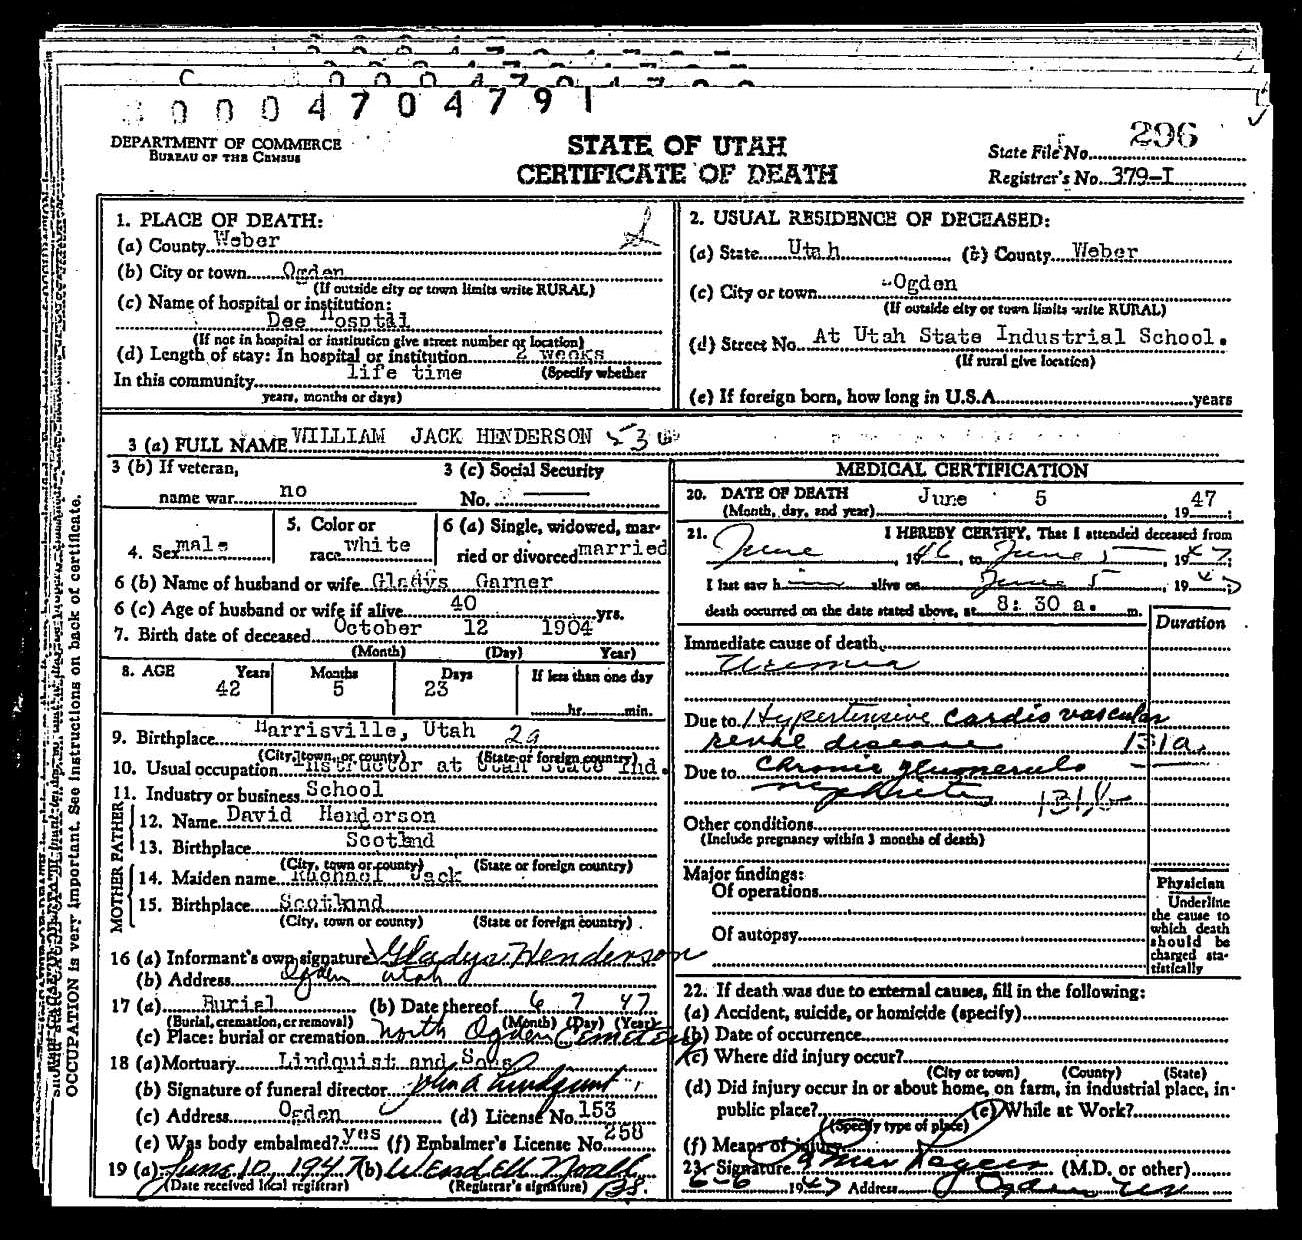 0004704791
DEPARTMENT OF COMMERCE
BUREAU OF THE CENSUS
STATE OF UTAH
CERTIFICATE OF DEATH
296
State File No.
Registrar's No. 379-I
1. PLACE OF DEATH:
(a) County Weber
(b) City or town Ogden
(If outside city or town limits write RURAL)
(c) Name of hospital or institution:
Dee Hosptal
(If not in hospital or institution give street number or location)
(d) Length of stay: In hospital or institution 2 weeks
(Specify whether
In this community life time
years, months or days)
2. USUAL RESIDENCE OF DECEASED:
(a) State Utah (b) County Weber
(c) City or town Ogden
(If outside city or town limits write RURAL)
(d) Street No. At Utah State Industrial School.
(If rural give location)
(e) If foreign born, how long in U.S.A. years
3 (a) FULL NAME WILLIAM JACK HENDERSON 536
3 (b) If veteran,
name war no
3 (c) Social Security
No.
4. Sex male
5. Color or
race White
6 (a) Single, widowed, mar-
ried or divorced married
6 (b) Name of husband or wife Gladys Garner
6 (c) Age of husband or wife if alive 40 yrs.
7. Birth date of deceased October 12 1904
(Month) (Day) Year)
8. AGE Years Months Days If less than one day
42 5 23
hr. min.
9. Birthplace Harrisville, Utah 29
(City, town, or county) (State or foreign country)
10. Usual occupation Instructor at Utah State Ind.
11. Industry or business School
FATHER
12. Name David Henderson
13. Birthplace Scotlnd
(City, town or county) (State or foreign country)
MOTHER
14. Maiden name Jack
15. Birthplace Scotlnnd
(City, town or county) (State or foreign country)
16 (a) Informant's own signature Gladys Henderson
(b) Address Ogden Utah
17 (a) Burial (b) Date thereof 6 7 47
(Burial, cremation, or removal) (Month) (Day) (Year)
(c) Place: burial or cremation North Ogden Cemetery
18 (a) Mortuary Lindquist and Sons
(b) Signature of funeral director John A Lindquist
(c) Address Ogden (d) License No. 153
(e) Was body embalmed? yes (f) Embalmer's License No. 258
19 (a) June 10 1947 (b) Wendell Noall
(Date received local registrar) (Registrar's signature)
MEDICAL CERTIFICATION
20. DATE OF DEATH June 5 1947
(Month, day, and year)
21. I HEREBY CERTIFY, That I attended deceased from
June, 1946, to June 5, 1947;
I last saw him alive on June 5, 1947;
death occurred on the date stated above, at 8: 30 a. m.
Duration
Immediate cause of death
Uremia
Due to Hypertensive cardio vascular
renal disease 131a.
Due to Chronic glomerulo
nephritis 131b
Other conditions
(Include pregnancy within 3 months of death)
Major findings:
Of operations
Of autopsy
Physician
Underline
the cause to
which death
should be
charged sta-
tistically
22. If death was due to external causes, fill in the following:
(a) Accident, suicide, or homicide (specify)
(b) Date of occurrence
(c) Where did injury occur?
(City or town) (County) (State)
(d) Did injury occur in or about home, on farm, in industrial place, in-
public place? (e) While at Work?
(Specify type of place)
(f) Means of injury
23. Signature (M.D. or other)
6-6 1947 Address Ogden
OCCUPATION is very important. See instructions on back of certificate.